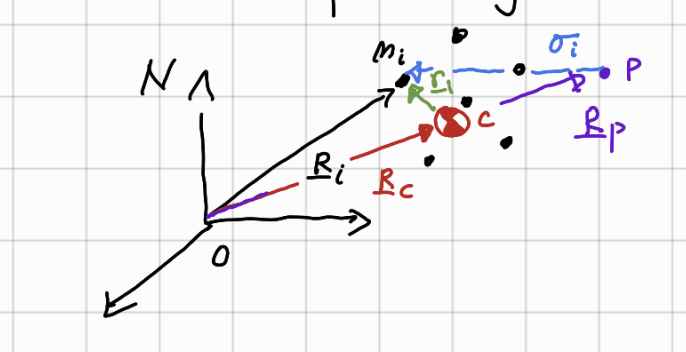 N
m_i
σ_i
P
r_i
C
R_p
R_i
R_c
O